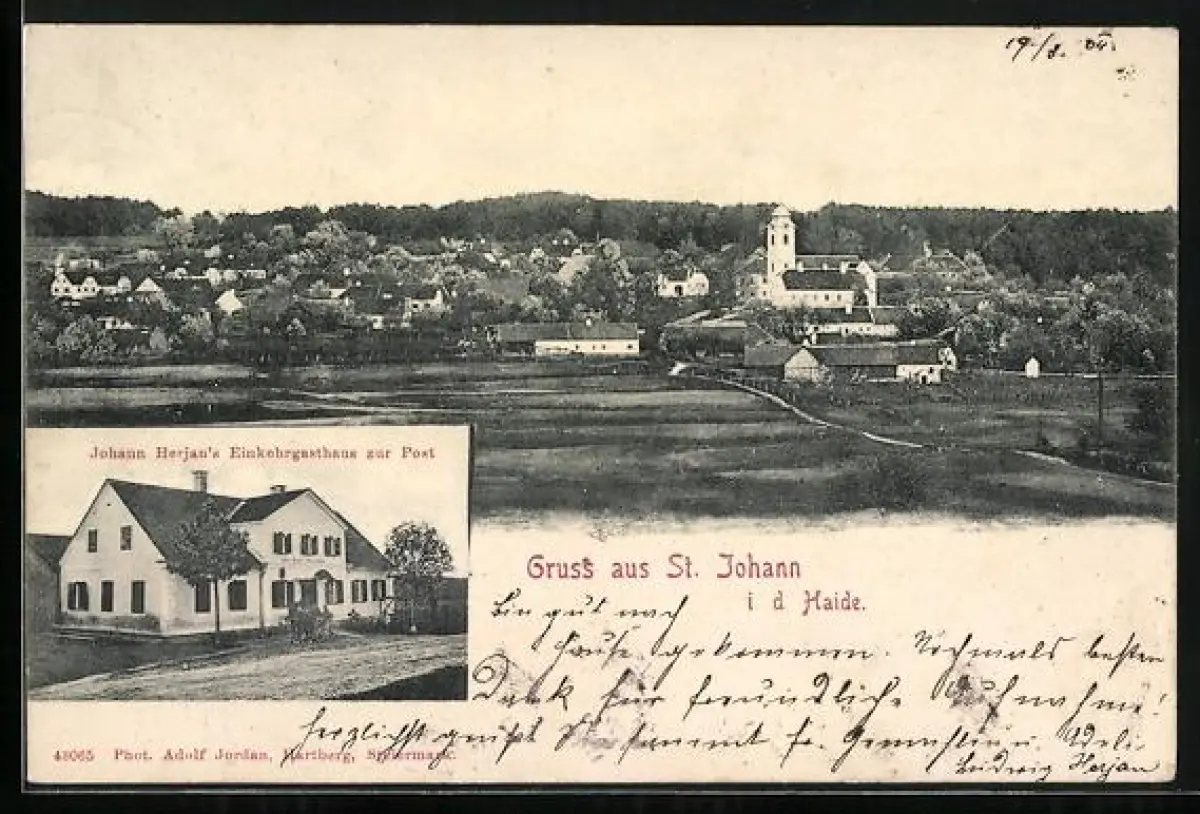 19/8. 04.
Johann Herjan's Einkehrgasthaus zur Post
Gruss aus St. Johann
i d Haide.
Bin gut nach
Hause gekommen. Nochmals besten
Dank für freundliche Aufnahme!
herzlichst grüßt Sie samt Fr. Gemahlin u. Adeli
Ludwig Herjan
48065 Phot. Adolf Jordan, Hartberg, Steiermark.